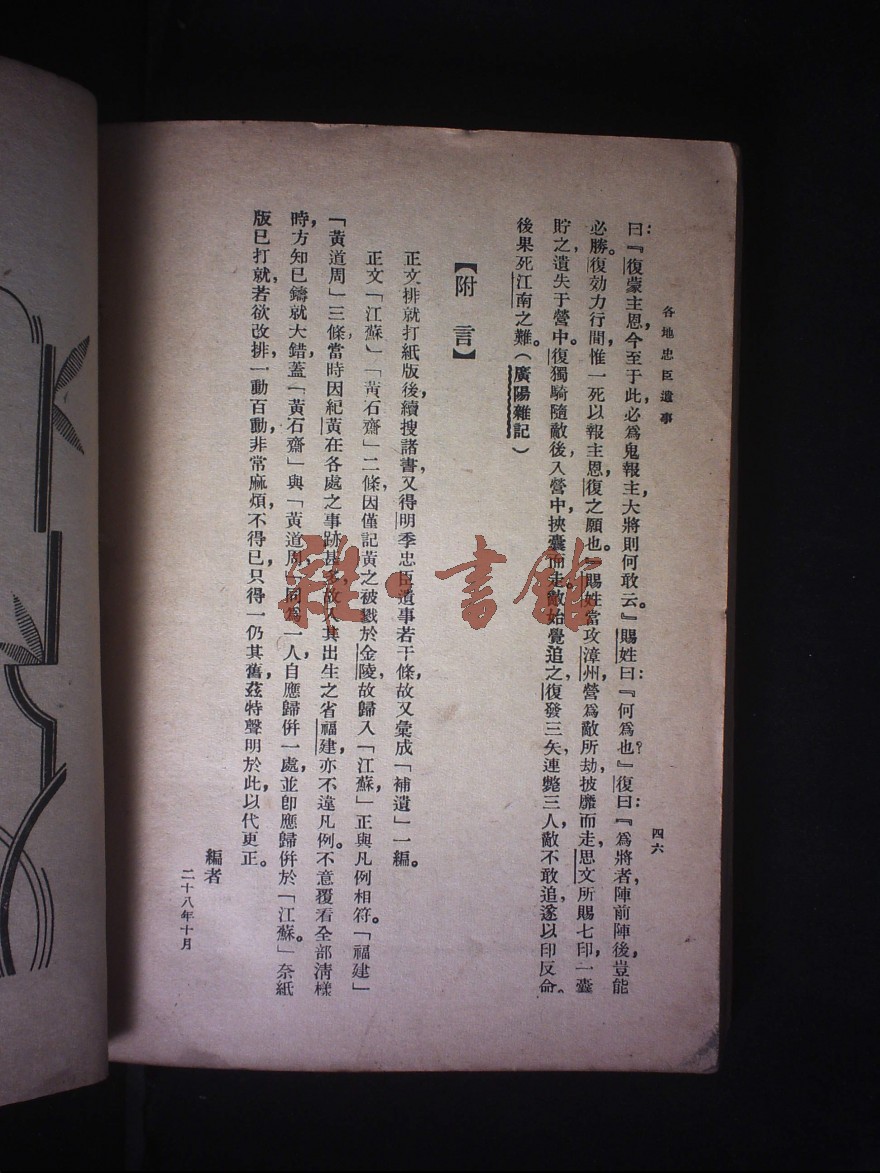 各地忠臣遺事
四六
曰：『復蒙主恩，今至于此，必爲鬼報主，大將則何敢云。』賜姓曰：『何爲也？』復曰：『爲將者，陣前陣後，豈能
必勝。復効力行間，惟一死以報主恩，復之願也。』賜姓當攻漳州，營爲敵所劫，披靡而走，思文所賜七印，一囊
貯之，遺失于營中。復獨騎隨敵後，入營中，挾囊而走，敵始覺追之，復發三矢，連斃三人，敵不敢追，遂以印反命。
後果死江南之難。（廣陽雜記）
【附言】
正文排就打紙版後，續搜諸書，又得明季忠臣遺事若干條，故又彙成「補遺」一編。
正文「江蘇」「黃石齋」二條，因僅記黃之被戮於金陵，故歸入「江蘇」，正與凡例相符。「福建」
「黃道周」三條，當時因紀黃在各處之事跡甚多，故入其出生之省福建，亦不違凡例。不意覆看全部清樣
時，方知已鑄就大錯，蓋「黃石齋」與「黃道周」同爲一人，自應歸併一處，並卽應歸併於「江蘇」。奈紙
版已打就，若欲改排，一動百動，非常麻煩，不得已，只得一仍其舊，茲特聲明於此，以代更正。
編者
二十八年十月
雜·書館